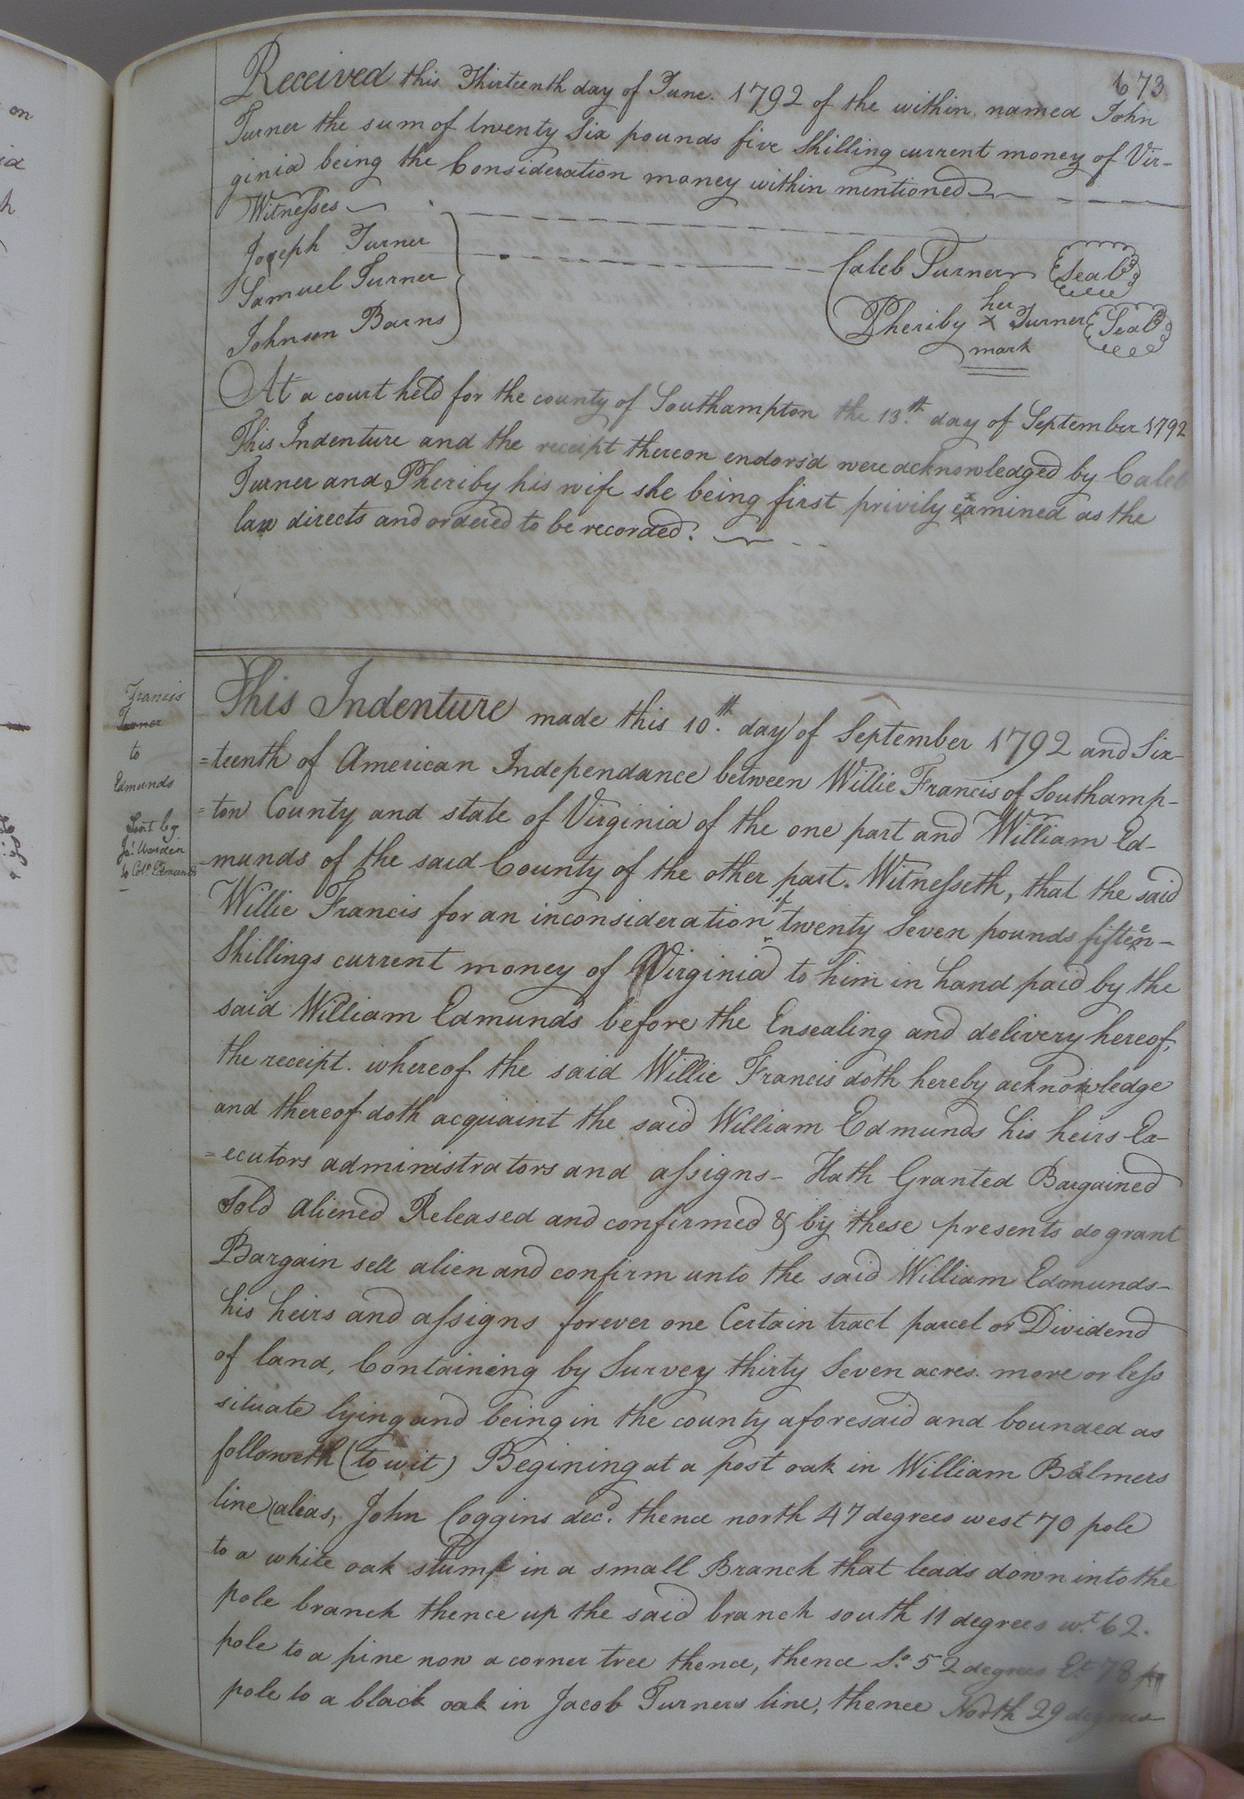 673
Received this Thirteenth day of June. 1792 of the within named John
Turner the sum of twenty Six pounds five Shilling current money of Vir-
ginia being the Consideration money within mentioned
Witnesses
Joseph Turner
Samuel Turner
Johnson Barns
Caleb Turner Seal
her
Pheriby x Turner Seal
mark
At a court held for the county of Southampton the 13th. day of September 1792
This Indenture and the receipt thereon endors'd were acknowledged by Caleb
Turner and Pheriby his wife she being first privily examined as the
law directs and ordered to be recorded.
Francis
Turner
to
Edmunds
Sent by
Js. Warden
to Colo. Edmunds
This Indenture made this 10th. day of September 1792 and Six-
=teenth of American Independance between Willie Francis of Southamp-
=ton County and state of Virginia of the one part and William Ed-
-munds of the said County of the other part. Witnesseth, that the said
Willie Francis for an inconsideration of twenty Seven pounds fifteen-
Shillings current money of Virginia to him in hand paid by the
said William Edmunds before the Ensealing and delivery hereof,
the receipt. whereof the said Willie Francis doth hereby acknowledge
and thereof doth acquaint the said William Edmunds his heirs Ex-
=ecutors administrators and assigns- Hath Granted Bargained
Sold aliened Released and confirmed & by these presents do grant
Bargain sell alien and confirm unto the said William Edmunds-
his heirs and assigns forever one Certain tract parcel or Dividend
of land, Containing by Survey thirty Seven acres. more or less
situate lying and being in the county aforesaid and bounded as
followeth (to wit) Begining at a post oak in William Balmers
line (alias, John Coggins decd. thence north 47 degrees west 70 pole
to a white oak stump in a small Branch that leads down into the
pole branch thence up the said branch south 11 degrees wt. 62.
pole to a pine now a corner tree thence, thence So. 52 degrees Et. 78 po
pole to a black oak in Jacob Turners line, thence North 29 degrees